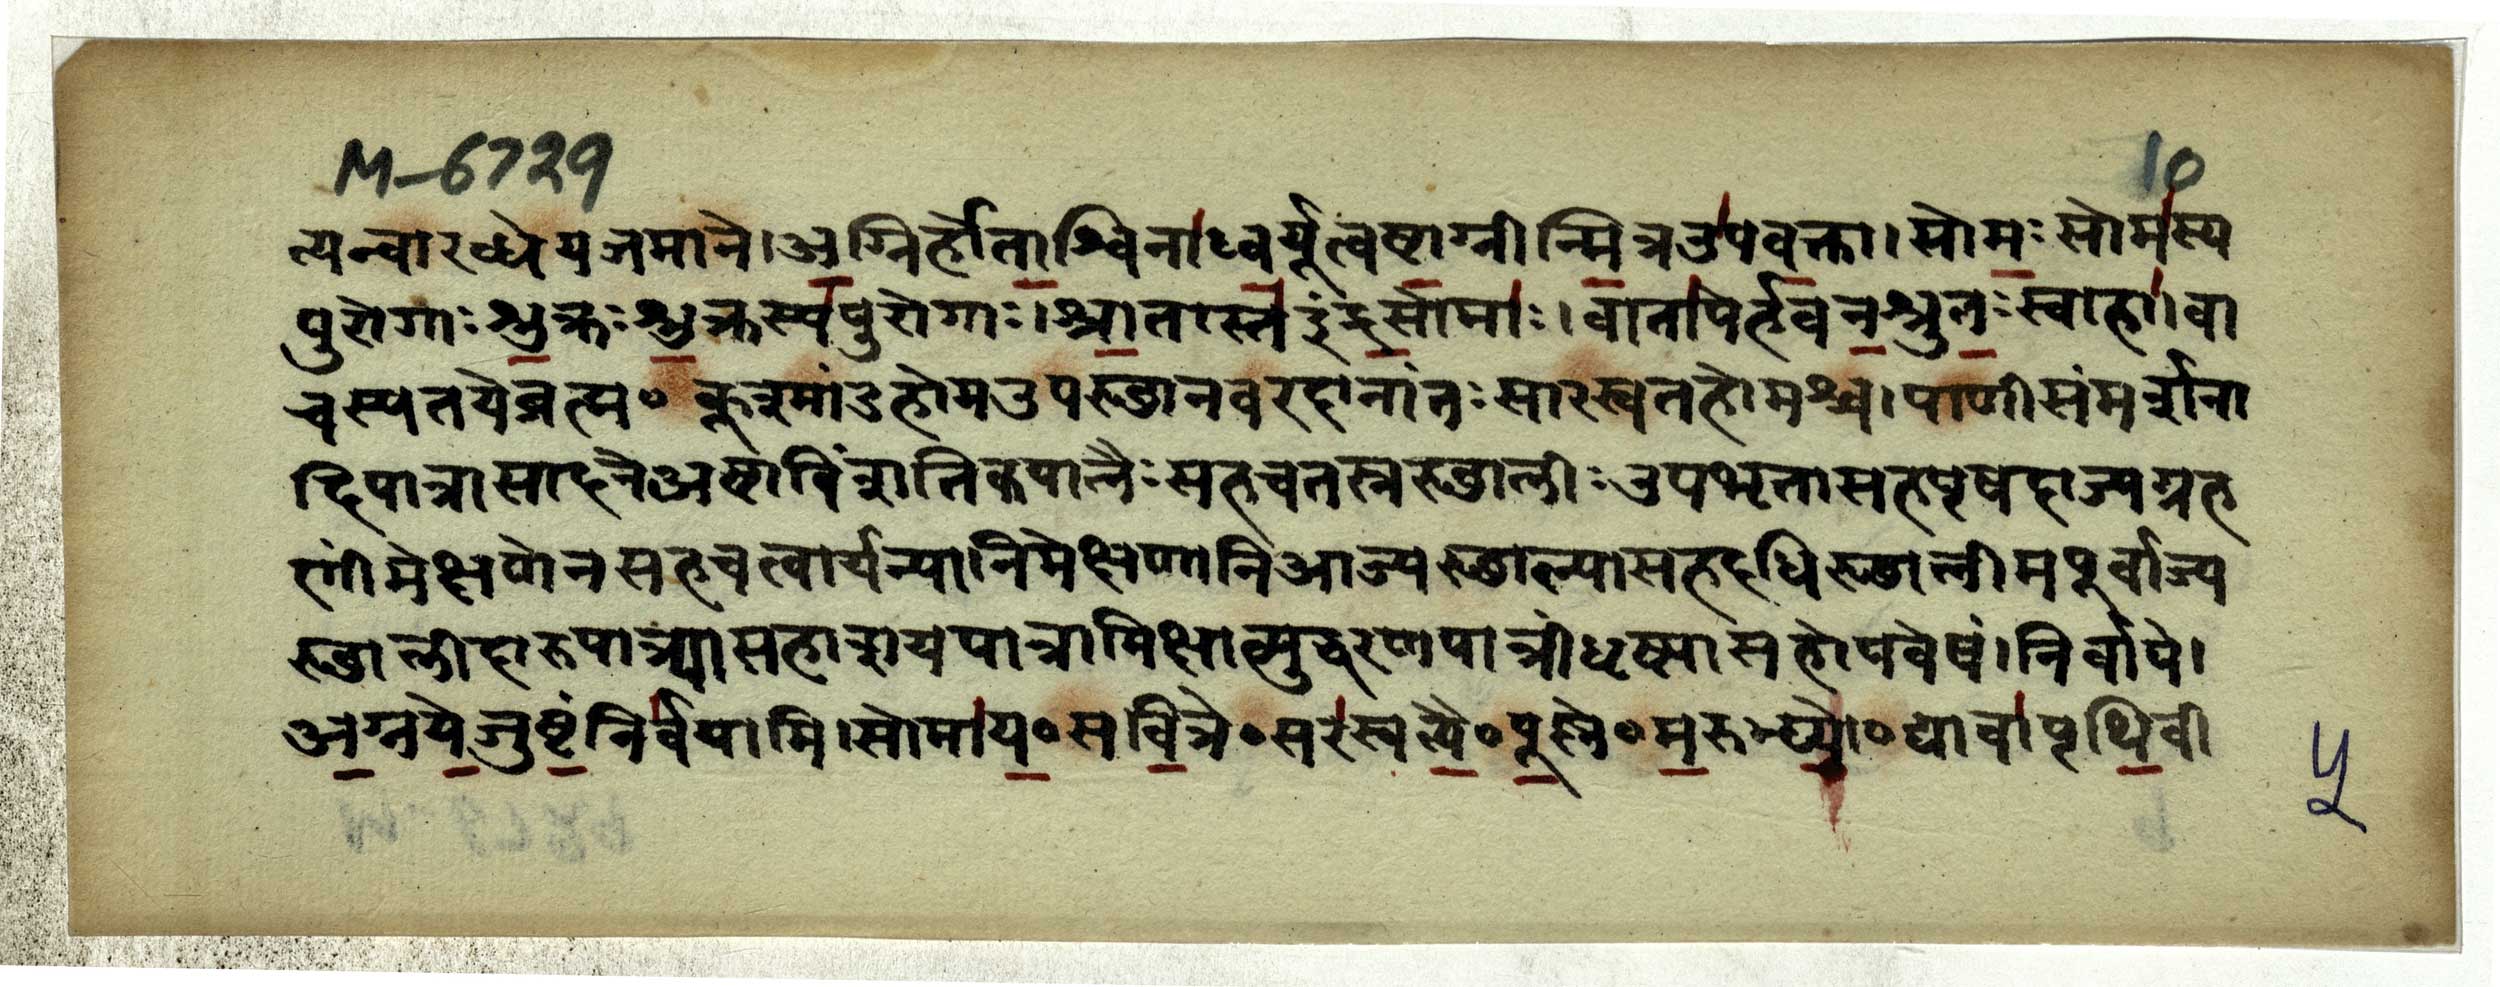 M-6729
10
त्यन्वारब्धेयजमाने।अ॒ग्निर्होता॒श्विना॑ध्व॒र्यूत्वष्टा॒ग्नीन्मि॒त्रउ॑पव॒क्ता।सोमः॒सोम॑स्य
पुरोगाः शु॒क्रःशु॒क्रस्य॑पुरोगाः।श्रा॒तास्त॑इंद्र॒सोमाः॑।वाता॑पेर्हवन॒श्रुतः॒स्वाहा॑।वा
चस्पतयेब्रह्म॰ कूश्मांडहोमउपस्थानवरदानांतः सारस्वतहोमश्च।पाणीसंमर्शना
दिपात्रासादनेअष्टाविंशतिकपालैः सहचतस्रस्थालीः उपभृतासहपृषदाज्यग्रह
णीं मेक्षणेनसहचत्वार्यन्यानिमेक्षणानिआज्यस्थाल्यासहदधिस्थालीमथूर्वाज्य
स्थालीदारुपात्र्यासहाशयपात्रामिक्षात्मुद्धरणपात्रींधृष्ट्यासहोपवेषं।निर्वापे।
अ॒ग्नये॒जुष्टं॒निर्व॑पामि।सोमा॑य॒॰सवि॒त्रे॰सर॑स्वत्यै॒॰पू॒ष्णे॰म॒रुभ्द्यो॒॰द्यावा॑पृथि॒वी
५